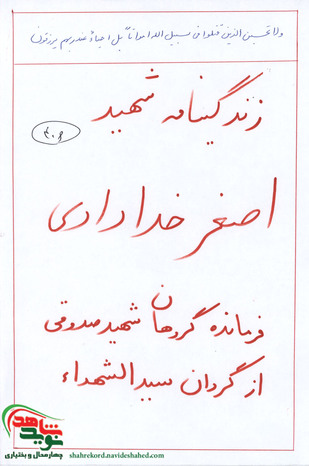 ولا تحسبن الذین قتلوا فی سبیل الله امواتاً بل احیاءٌ عندربهم یرزقون
زندگینامه شهید
اصغر خدادادی
فرمانده گروهان شهید صدوقی
از گردان سیدالشهداء
نوید شاهد
چهارمحال و بختیاری
shahrekord.navideshahed.com